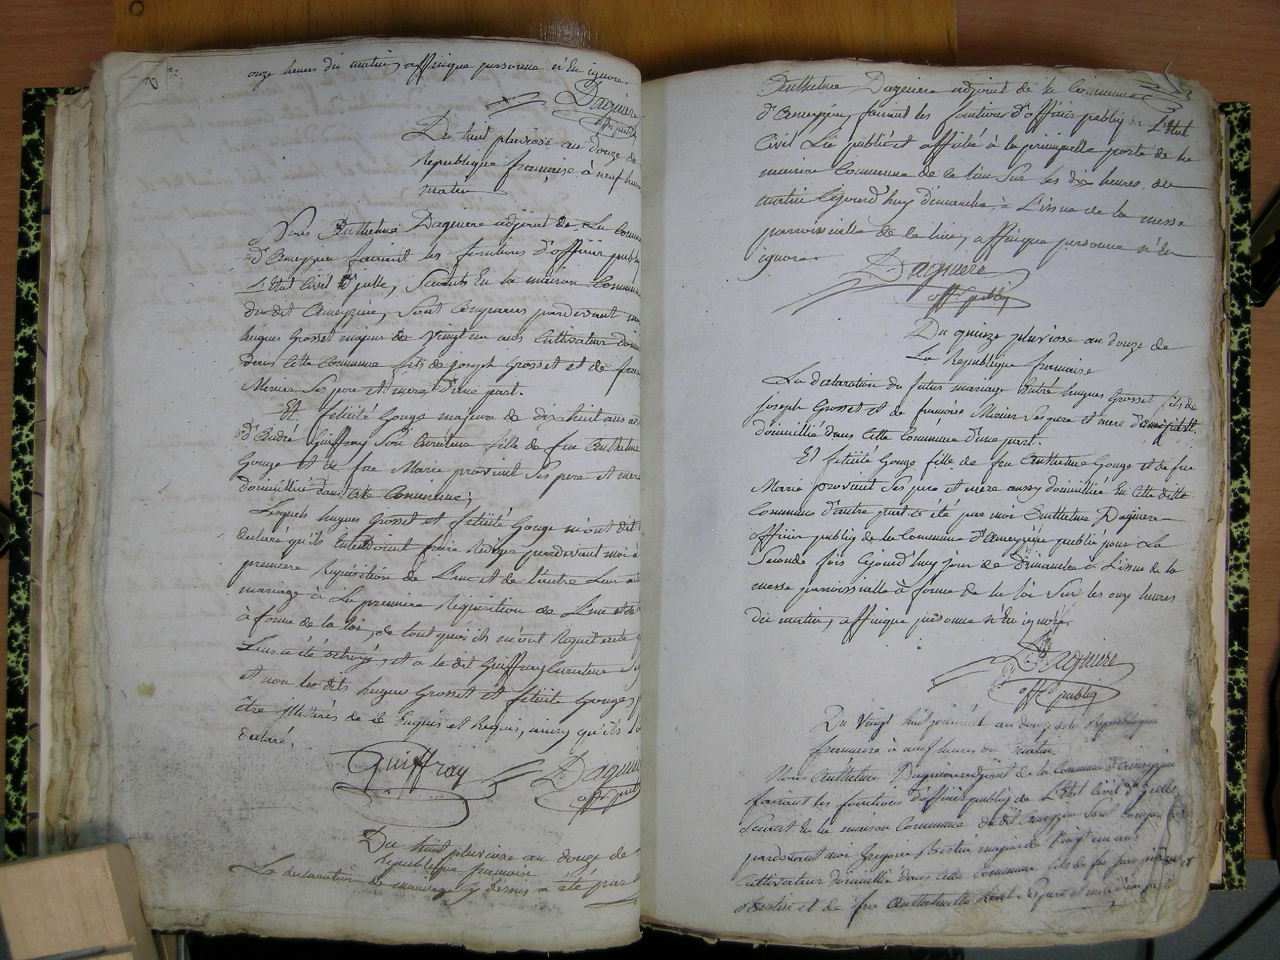 onze heures du matin, affinque personne n'En ignore.
Daguere
off. publiq
Du huit pluviose an douze de
République françoise, à neuf heures
matin
Nous Anthelme Daguere adjoint de La Commune
d'Ameyzieu faisant les fonctions d'officier public
L'Etat Civil d'
Scavants En La maison Commune
du dit Ameyzieu, Sont Comparus pardevant
hugues Grosset majeur de Vingt un ans Cultivateur
dans Cette Commune fils de joseph Grosset et de
Mercier Ses pere et mere d'une part.
Et felicité Gouge majeure de dix huit ans
d'André Guiffray Son Curateur fille de feu Anthelme
Gouge et de feue Marie provent Ses pere et mere
domicillié dans Cette Commune;
Lesquels hugues Grosset et felicité Gouge m'ont dit
Declaré qu'ils Entendoient faire Rediger pardevant moi
premiere Requisition de L'un et de L'autre Leur
mariage à La premiere Requisition de L'un et de
à forme de la loi, de tout quoi ils m'ont Requit
Leur a été octroyé, et a le dit Guiffray Curateur
et non les dits hugues Grosset et felicité Gouge
de Ce Enquis et Requis, ainsy qu'ils
Declaré.
Guiffray Daguere
off. publ
Du huit pluviose an douze de
République françoise
La declaration de mariage cy dessus a été par
Anthelme Daguere adjoint de la Commune
d'Ameyzieu, faisant les fonctions d'officier publiq L'Etat
Civil Lie publié et affiché à la principalle porte de la
maison Commune de ce lieu Sur les dix heures du
matin Cejourd'huy dimanche, à L'issue de la messe
parroissialle de ce lieu, affinque personne n'En
ignore
Daguere
off. publiq
Du quinze pluviose an douze de
La République francaise
La declaration du futur mariage Entre hugues Grosset fils de
joseph Grosset et de françoise Mercier Ses pere et mere
domicillié dans Cette Commune d'une part.
Et felicité Gouge fille de feu Anthelme Gouge et de feue
Marie provent Ses pere et mere aussy domicillié En Cette ditte
Commune d'autre part a été par moi Anthelme Daguere
officier publiq de la Commune d'Ameyzieu publié pour La
Seconde fois Cejourd'huy jour de dimanche à L'issue de la
messe parroissialle à forme de la loi Sur les onze heures
du matin, affinque personne n'En ignore.
Daguere
off. publiq
Du Vingt huit pluviose an douze de la République
francoise à neuf heures du matin
Nous Anthelme Daguere adjoint de la Commune d'Ameyzieu
faisant les fonctions d'officier publiq de L'Etat Civil d'
Scavant En la maison Commune du dit Ameyzieu Sont Comparus
pardevant moi Gregoire Bertin majeur de Vingt un ans
Cultivateur domicillié dans Cette Commune fils de feu
et de feue Anthelmette Ses pere et mere d'une part